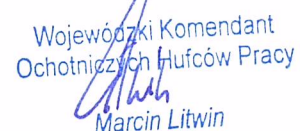 Wojewódzki Komendant
Ochotniczych Hufców Pracy
Marcin Litwin